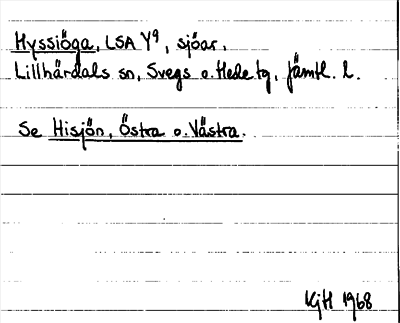 Hyssiöga, LSA Y9, sjöar.
Lillhärdals sn, Svegs o. Hede tg, Jämtl. l.
Se Hisjön, Östra o. Västra.
KjH 1968